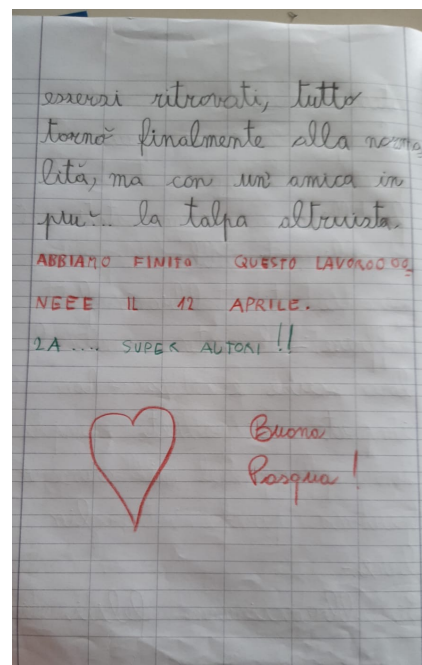 essersi ritrovati, tutto
tornò finalmente alla norma_
lità, ma con un' amica in
più... la talpa altruista.
ABBIAMO FINITO QUESTO LAVOROOOO_
NEEE IL 12 APRILE.
2A .... SUPER AUTORI !!
Buona
Pasqua !